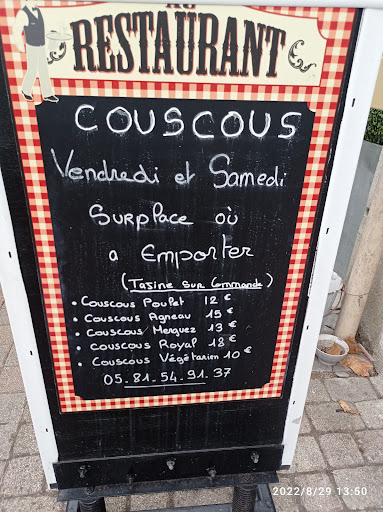 AU
RESTAURANT
COUSCOUS
Vendredi et Samedi
SURPLACE OÙ
a Emporter
(Tajine sur Commande)
• Couscous Poulet 12 €
• Couscous Agneau 15 €
• Couscous Merguez 13 €
• Couscous Royal 18 €
• Couscous Végétarien 10 €
05.81.54.91.37
2022/8/29 13:50